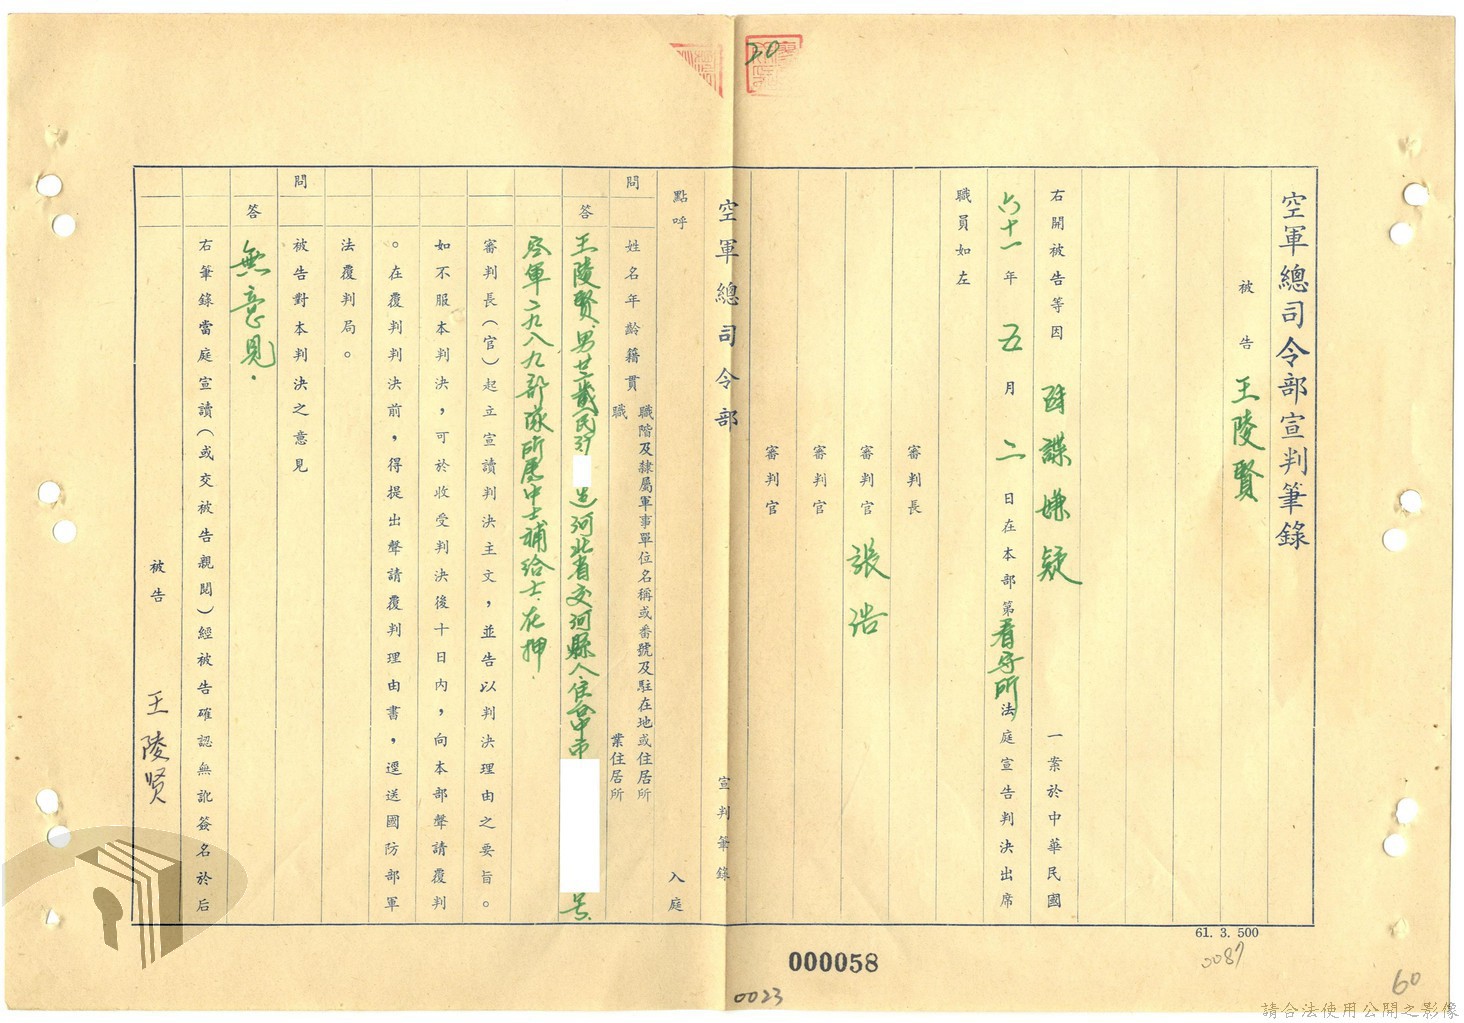 空軍總司令部宣判筆錄
被告 王陵賢
右開被告等因 叛諜嫌疑 一案於中華民國
六十一年 五 月 二 日在本部第看守所法庭宣告判決出席
職員如左
審判長
審判官 張浩
審判官
審判官
空軍總司令部 宣判筆錄
點呼 入庭
問 姓名年齡籍貫 職階及隸屬軍事單位名稱或番號及駐在地或住居所
職 業住居所
答 王陵賢、男廿三歲民39 生河北省交河縣人住台中市 号
空軍二九八九部隊所屬中士補給士、在押.
審判長(官)起立宣讀判決主文,並告以判決理由之要旨。
如不服本判決,可於收受判決後十日內,向本部聲請覆判
。在覆判判決前,得提出聲請覆判理由書,遞送國防部軍
法覆判局。
問 被告對本判決之意見
答 無意見.
右筆錄當庭宣讀(或交被告親閱)經被告確認無訛簽名於后
被告 王陵贤
20
61. 3. 500
0087
000058
0023
60
請合法使用公開之影像